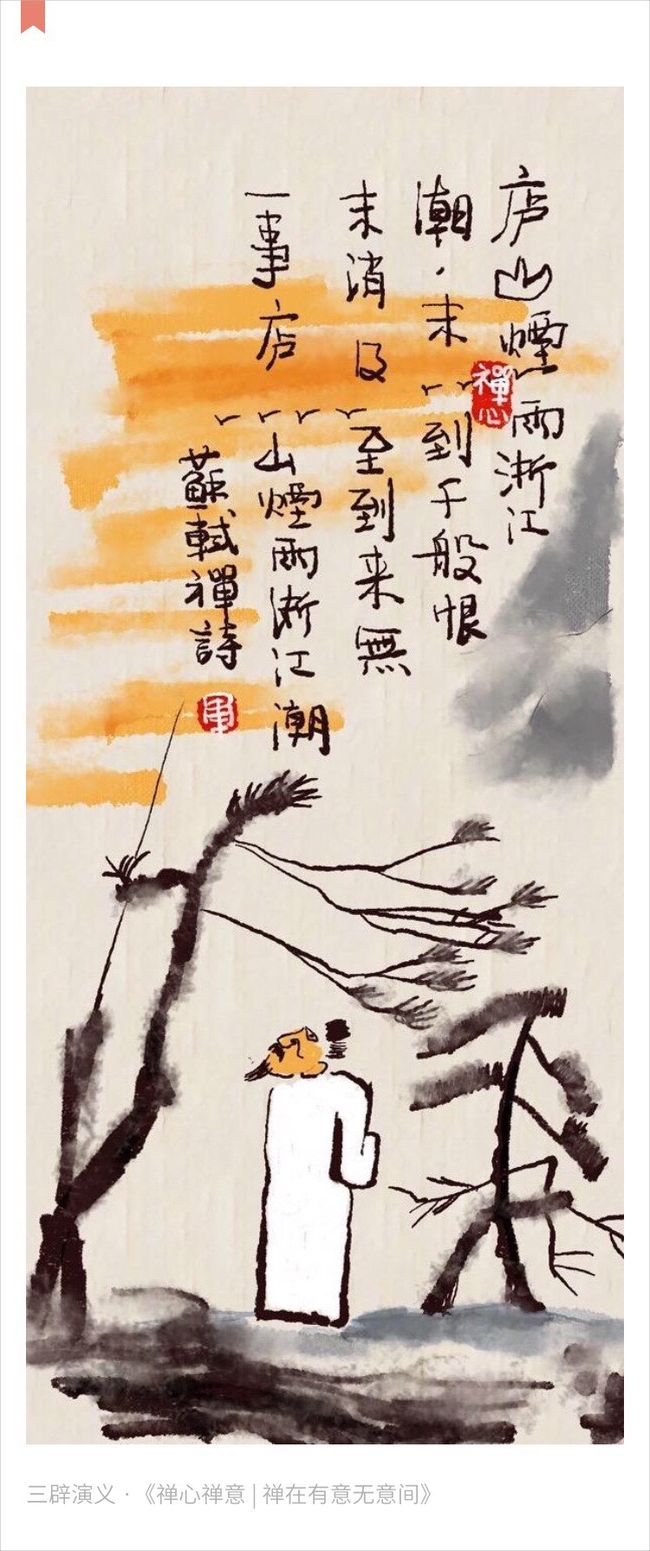 庐山煙雨浙江
潮、未到千般恨
未消及至到来無
一事庐山煙雨浙江潮
蘇軾禪詩
禪心
三辟演义 ·《禅心禅意 | 禅在有意无意间》